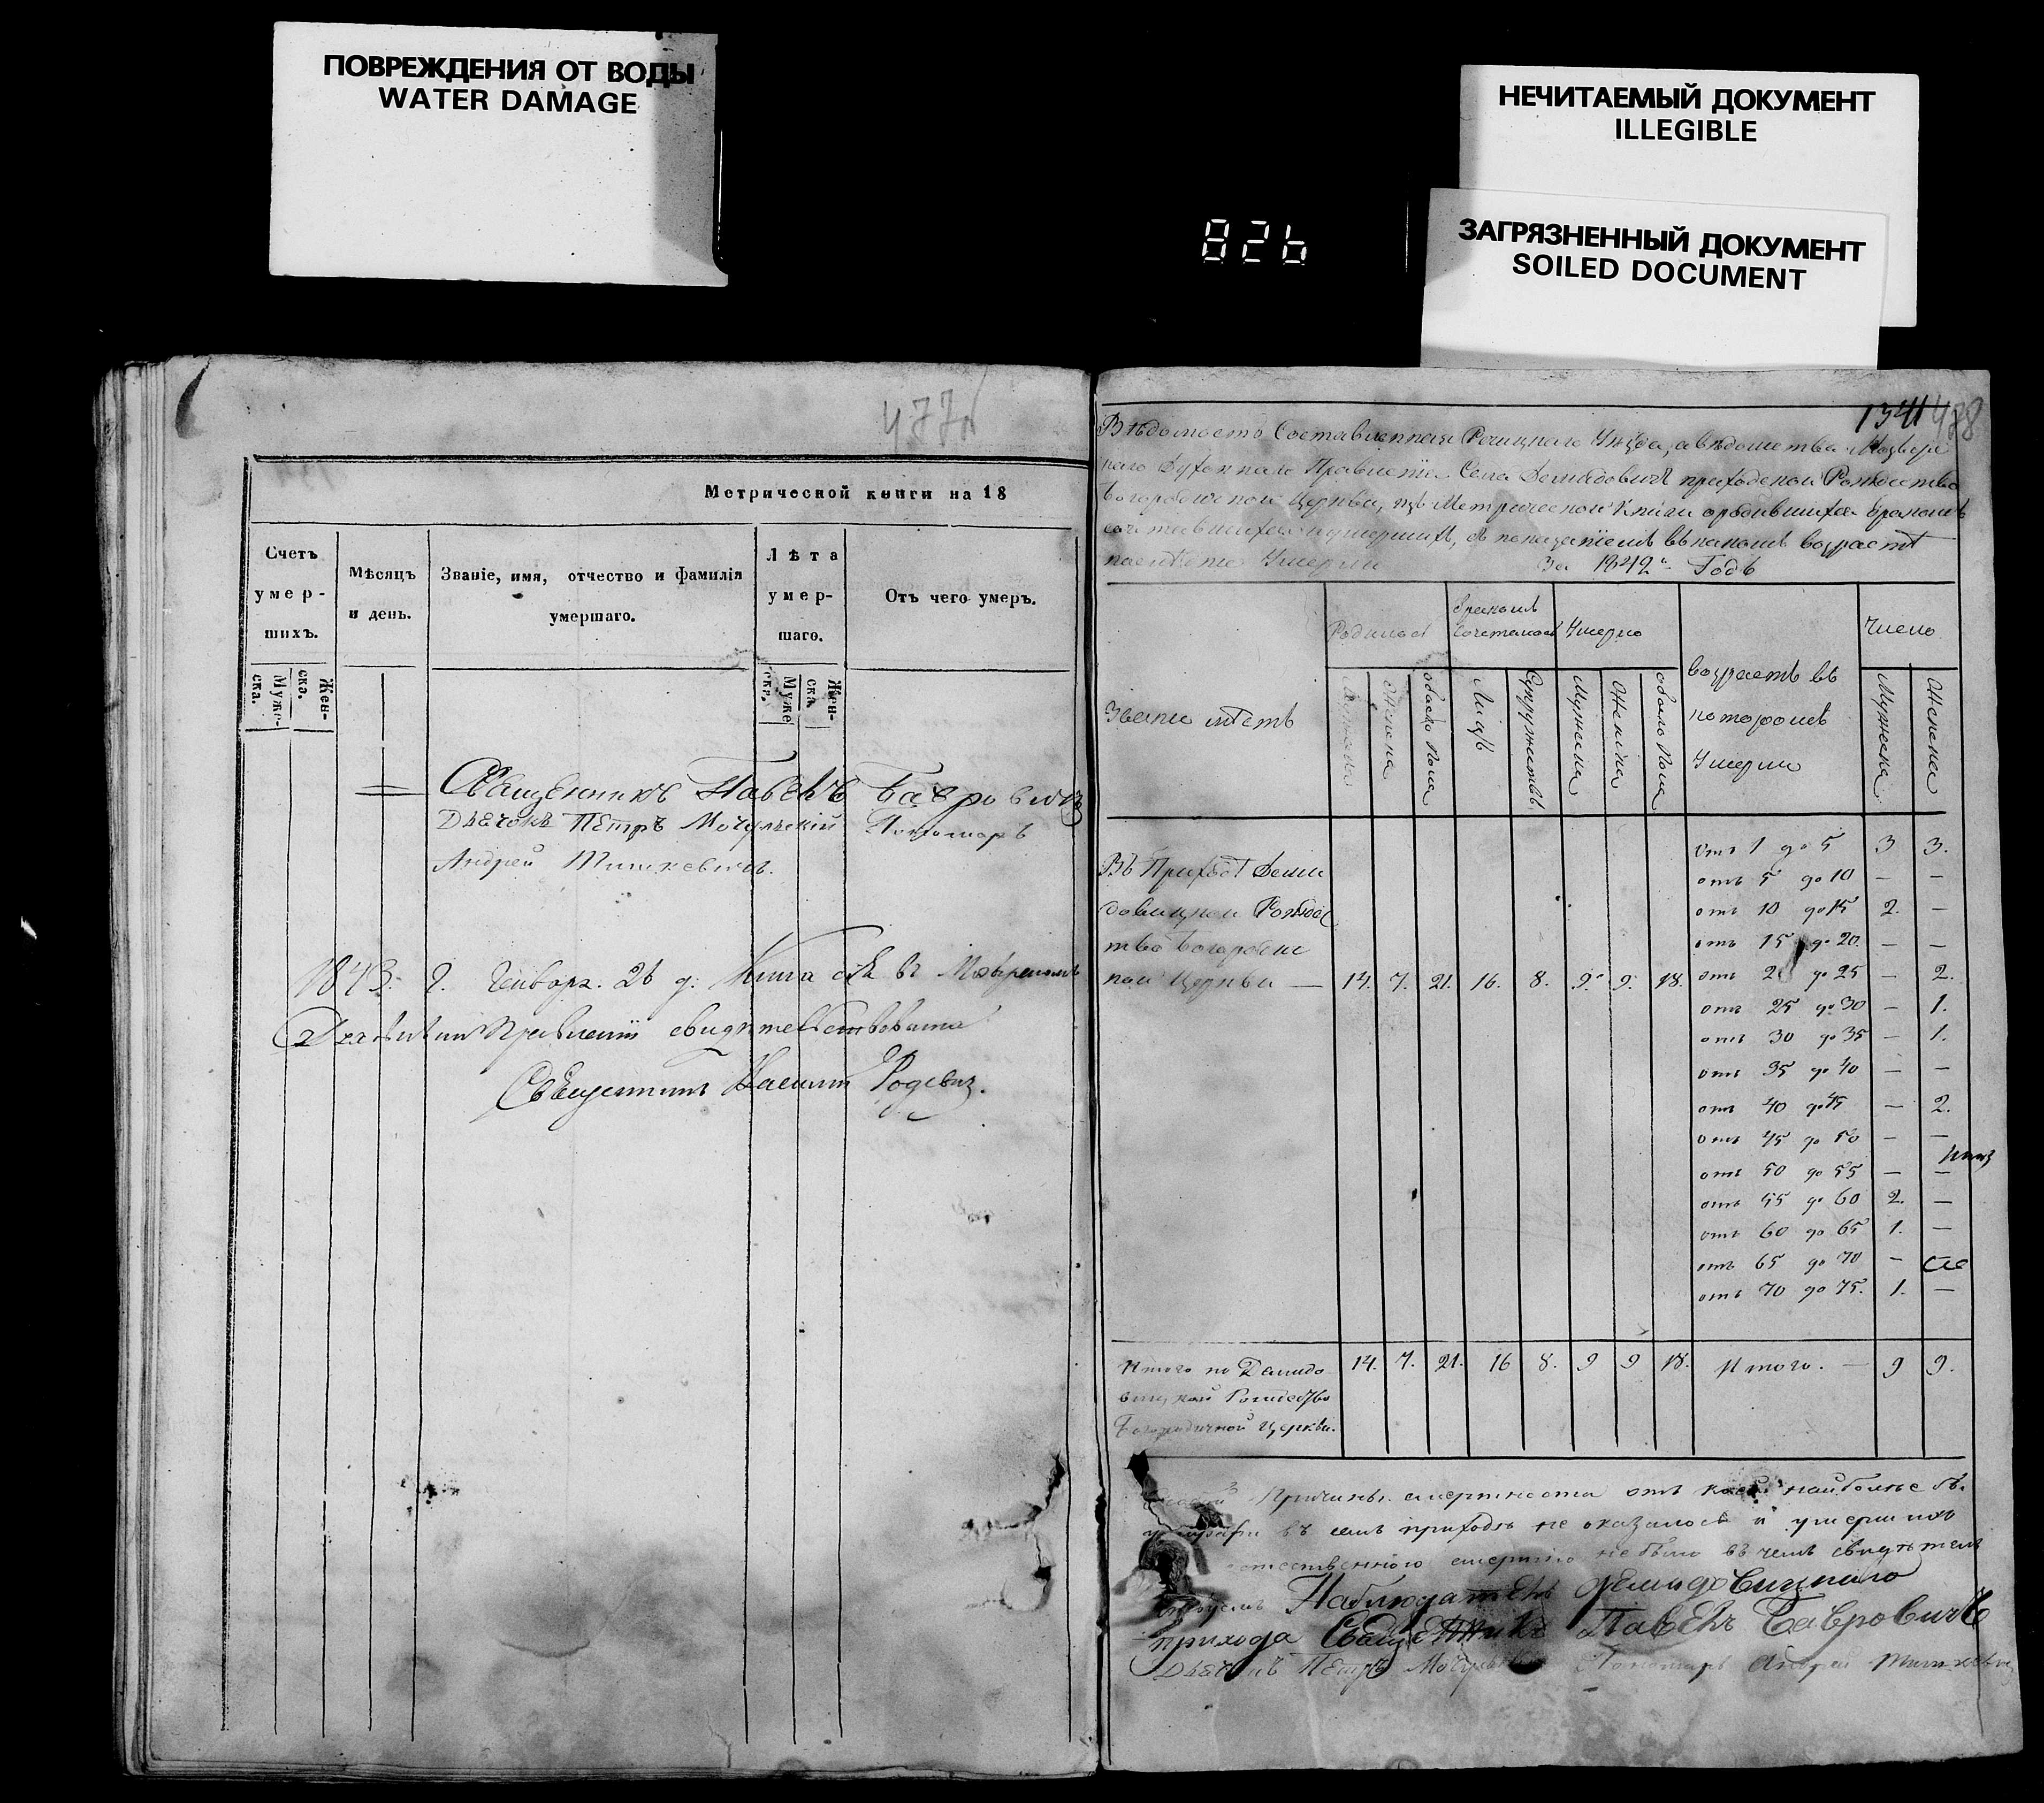 ПОВРЕЖДЕНИЯ ОТ ВОДЫ
WATER DAMAGE
НЕЧИТАЕМЫЙ ДОКУМЕНТ
ILLEGIBLE
ЗАГРЯЗНЕННЫЙ ДОКУМЕНТ
SOILED DOCUMENT
826
477
Метрической книги на 18
Счетъ умер-шихъ.
Мѣсяцъ и день.
Званіе, имя, отчество и фамилія умершаго.
Лѣта умер-шаго.
Отъ чего умеръ.
Муже-ска.
Жен-ска.
Муже ска.
Жен-ска.
Священникъ Павелъ Бавровичъ
Дьячокъ Петръ Мочульскій Пономарь
Андрей Тишкевичъ.
1843. г. Генваря. 26 д. Книга сія въ Мозырскомъ
Духовномъ Правленіи свидѣтельствована
Священникъ Родевич.
1341 478
Вѣдомость Составленная Речицкаго Уѣзда, вѣдомства Мозыр
наго Духовнаго Правленія Села Демидовичъ приходской Рождество
Богородичной Церкви, изъ Метрической Книги о родившихся бракомъ
сочетавшихся и умершихъ, съ показаніемъ въ какомъ возрастѣ
Умерли За 1842 Годъ
Званіе мѣстъ
Родилось
бракомъ сочеталось
Умерло
возрастъ въ которомъ Умерли
Число
Мужеска
Женска
обоего Пола
Лицъ
Супружествъ
Мужеска
Женска
обоего Пола
Мужеска
Женска
Въ Приходѣ Деми
довицкой Рождес
тво Богородич
ной Церкви — 14. 7. 21. 16. 8. 9. 9. 18.
отъ 1 до 5 3 3.
отъ 5 до 10 — —
отъ 10 до 15 2. —
отъ 15 до 20. — —
отъ 2 до 25 — 2.
отъ 25 до 30 — 1.
отъ 30 до 35 — 1.
отъ 35 до 40 — —
отъ 40 до 45 — 2.
отъ 45 до 50 — —
отъ 50 до 55 — —
отъ 55 до 60 2. —
отъ 60 до 65 1. —
отъ 65 до 70 —
отъ 70 до 75. 1. —
Итого по Демидо
вицкой Рождество
Богородичной Церкви.
14. 7. 21. 16 8. 9 9 18. Итого. — 9 9.
Причины смертности отъ коей наиболѣе бы
въ семъ приходѣ не оказалось и умершихъ
естественною смертію не было въ чемъ свидѣтель
ствуемъ Наблюдатель Демидовицкаго
прихода Священникъ Павелъ Бавровичъ
Дьячокъ Петръ Мочульскій Пономарь Андрей Тишкевичъ